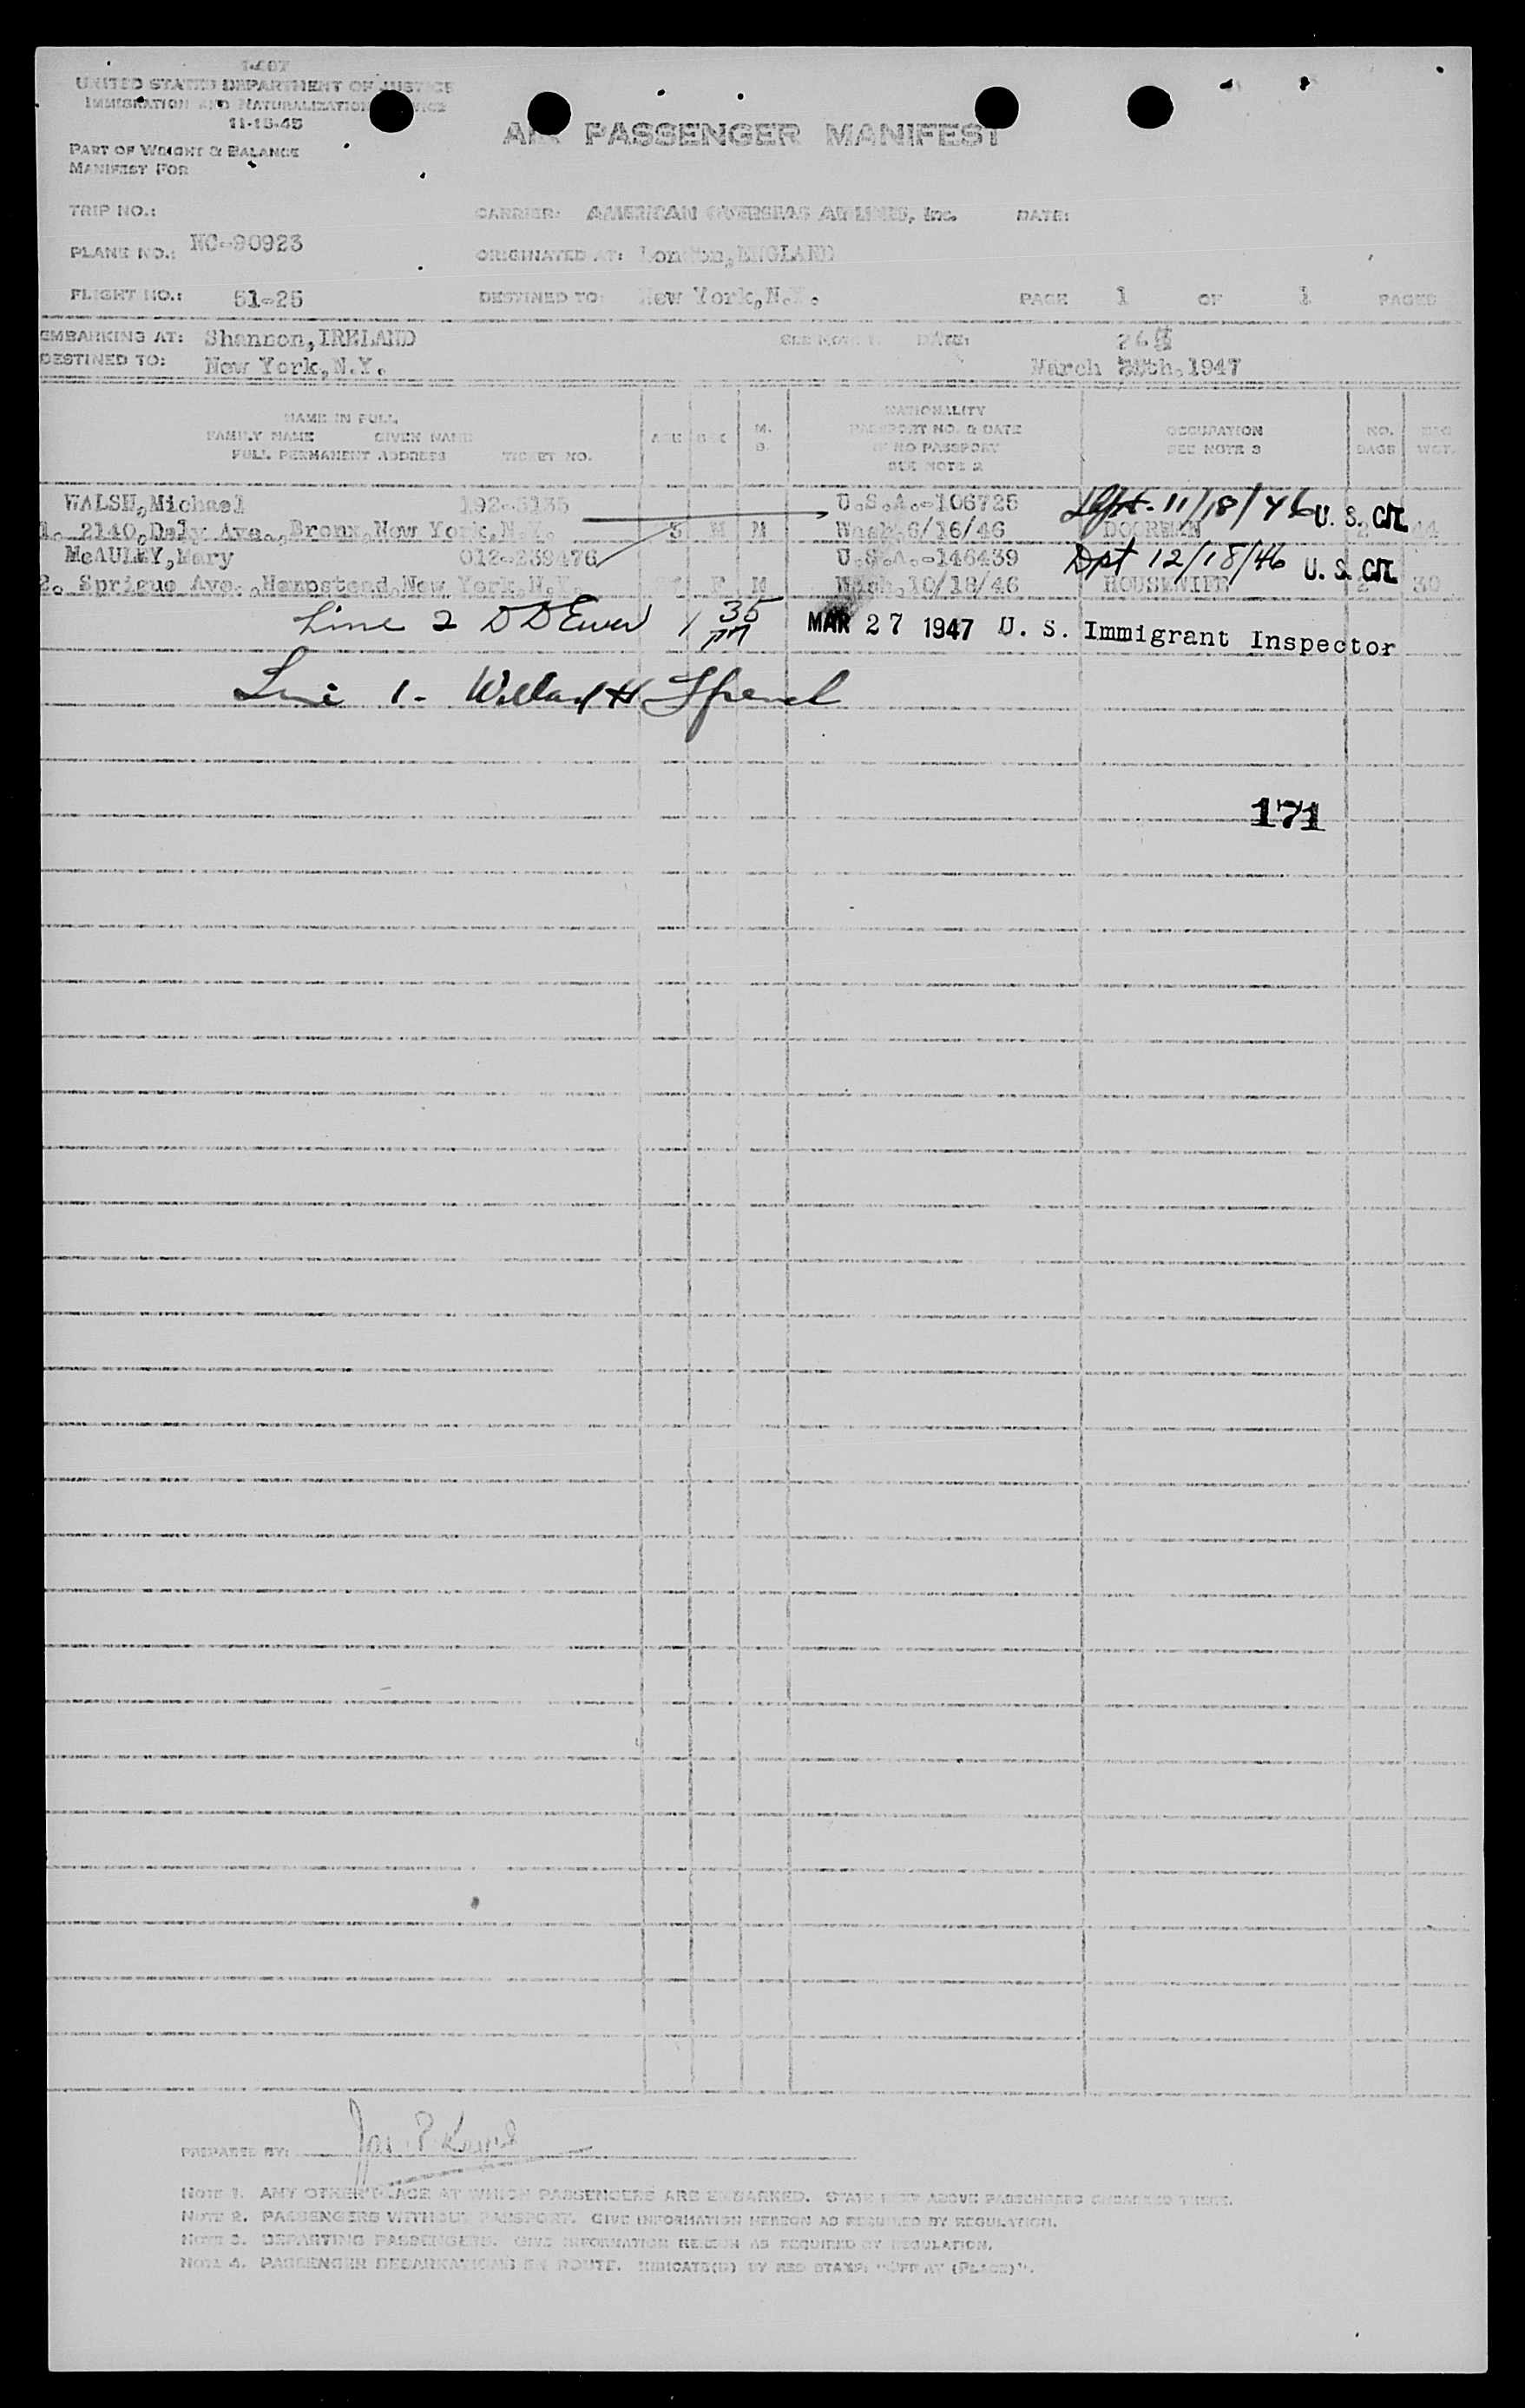 I-407
UNITED STATES DEPARTMENT OF JUSTICE
IMMIGRATION AND NATURALIZATION SERVICE
11-15-45
AIR PASSENGER MANIFEST
PART OF WEIGHT & BALANCE
MANIFEST FOR
TRIP NO.: CARRIER: AMERICAN OVERSEAS AIRLINES, Inc. DATE:
PLANE NO.: NC-90923 ORIGINATED AT: London,ENGLAND
FLIGHT NO.: 51-25 DESTINED TO: New York,N.Y. PAGE 1 OF 1 PAGES
EMBARKING AT: Shannon,IRELAND SEE NOTE 1. DATE: 26
DESTINED TO: New York,N.Y. March th,1947
NAME IN FULL
FAMILY NAME GIVEN NAME
FULL PERMANENT ADDRESS TICKET NO. AGE SEX M. S. NATIONALITY PASSPORT NO. & DATE IF NO PASSPORT SEE NOTE 2 OCCUPATION SEE NOTE 3 NO. BAGS BAG WGT.
WALSH,Michael 192-5135 U.S.A.-106725 Dept. 11/18/46 U. S. CIT.
1. 2140,Daly Ave.,Bronx,New York,N.Y. M M Wash,6/16/46 DOORMAN 2 44
McAULEY,Mary 012-239476 U.S.A.-146439 Dpt 12/18/46 U. S. CIT.
2. Sprigue Ave.,Hempstead,New York,N.Y. F M Wash,10/18/46 HOUSEWIFE 2 30
Line 2 D D 1 35 pm MAR 27 1947 U. S. Immigrant Inspector
Line 1 - Willard H
171
PREPARED BY:
NOTE 1. ANY OTHER PLACE AT WHICH PASSENGERS ARE EMBARKED. STATE NEXT ABOVE PASSENGERS EMBARKED THERE.
NOTE 2. PASSENGERS WITHOUT PASSPORT. GIVE INFORMATION HEREON AS REQUIRED BY REGULATION.
NOTE 3. DEPARTING PASSENGERS. GIVE INFORMATION HEREON AS REQUIRED BY REGULATION.
NOTE 4. PASSENGER DEBARKATIONS EN ROUTE. INDICATE(D) BY RED STAMP: "OFF AT (PLACE)".